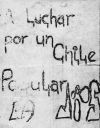 A Luchar
por un Chile
Popular